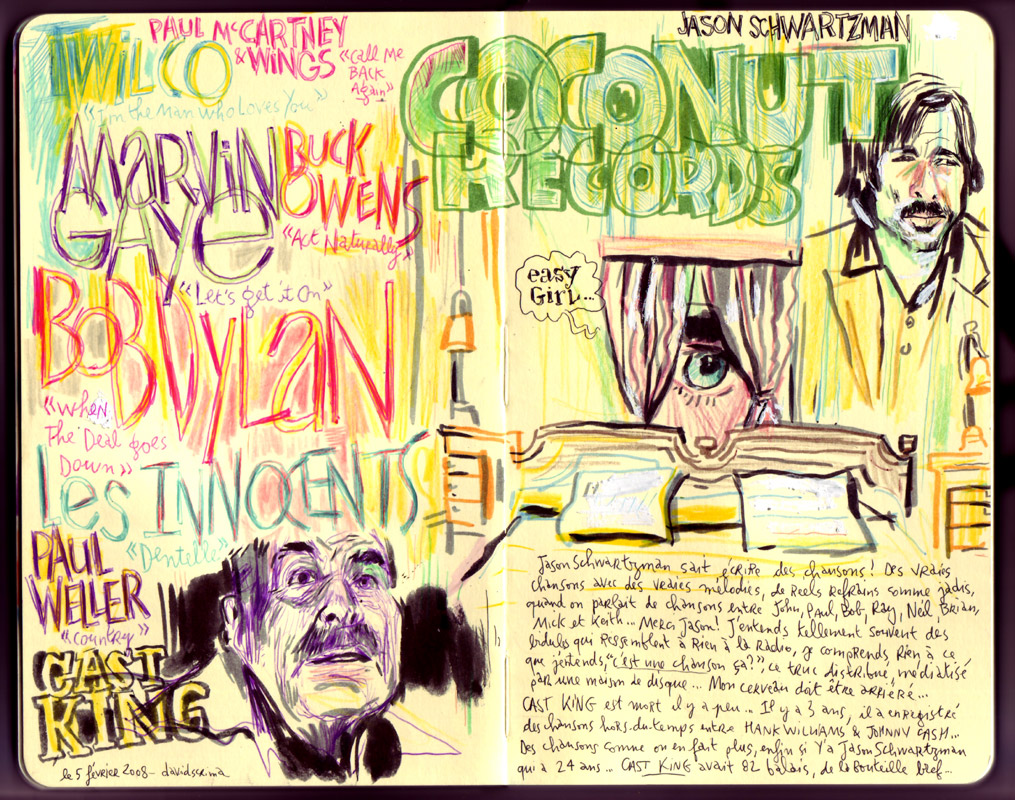 WILCO
PAUL McCARTNEY
& WINGS
«Call Me
BACK
Again»
«I'm the Man who Loves You»
MARVIN
GAYE
«Let's get it On»
BUCK
OWENS
«Act Naturally»
BOB DYLAN
«When
The Deal goes
Down»
Les INNOCENTS
«Dentelle»
PAUL
WELLER
«Country»
CAST
KING
le 5 février 2008 - davidscrima
JASON SCHWARTZMAN
COCONUT
RECORDS
easy
GIRL...
Jason Schwartzman sait écrire des chansons! Des vraies
chansons avec des vraies mélodies, de Réels Refrains comme jadis,
quand on parlait de chansons entre John, Paul, Bob, Ray, Neil, Brian,
Mick et Keith... Merci Jason! J'entends tellement souvent des
bidules qui Ressemblent à Rien à la Radio, je comprends Rien à ce
que j'entends, "c'est une chanson ça?", ce truc distribué, médiatisé
par une maison de disque... Mon cerveau doit être arriéré...
CAST KING est mort il y a peu... Il y a 3 ans, il a enregistré
des chansons hors-du-temps entre HANK WILLIAMS & JOHNNY CASH...
Des chansons comme on en fait plus, enfin si y'a Jason Schwartzman
qui a 24 ans... CAST KING avait 82 balais, de la bouteille bref...